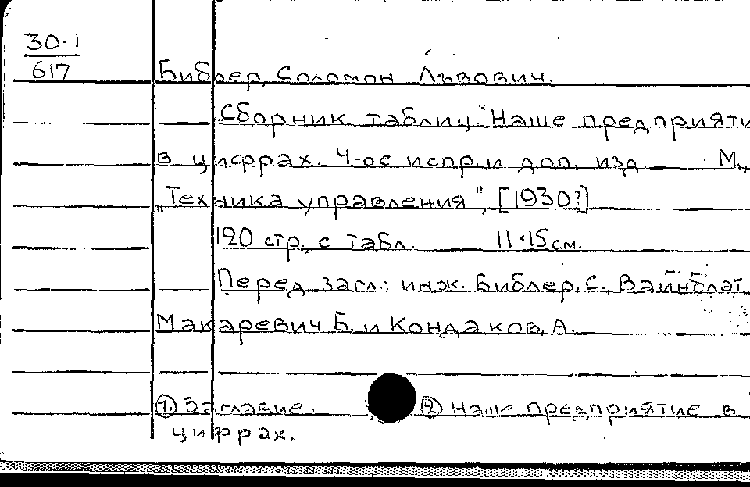 30-1
617
Библер, Соломон Львович.
Сборник таблиц "Наше предприяти
в цифрах. 4-ое испр. и доп. изд М.,
"Техника управления", [1930?]
120 стр. с табл. 11·15 см.
Перед загл.: инж. Библер, С. Вайнблат
Макаревич Б. и Кондаков, А.
1. Заглавие. 2. Наше предприятие в
цифрах.